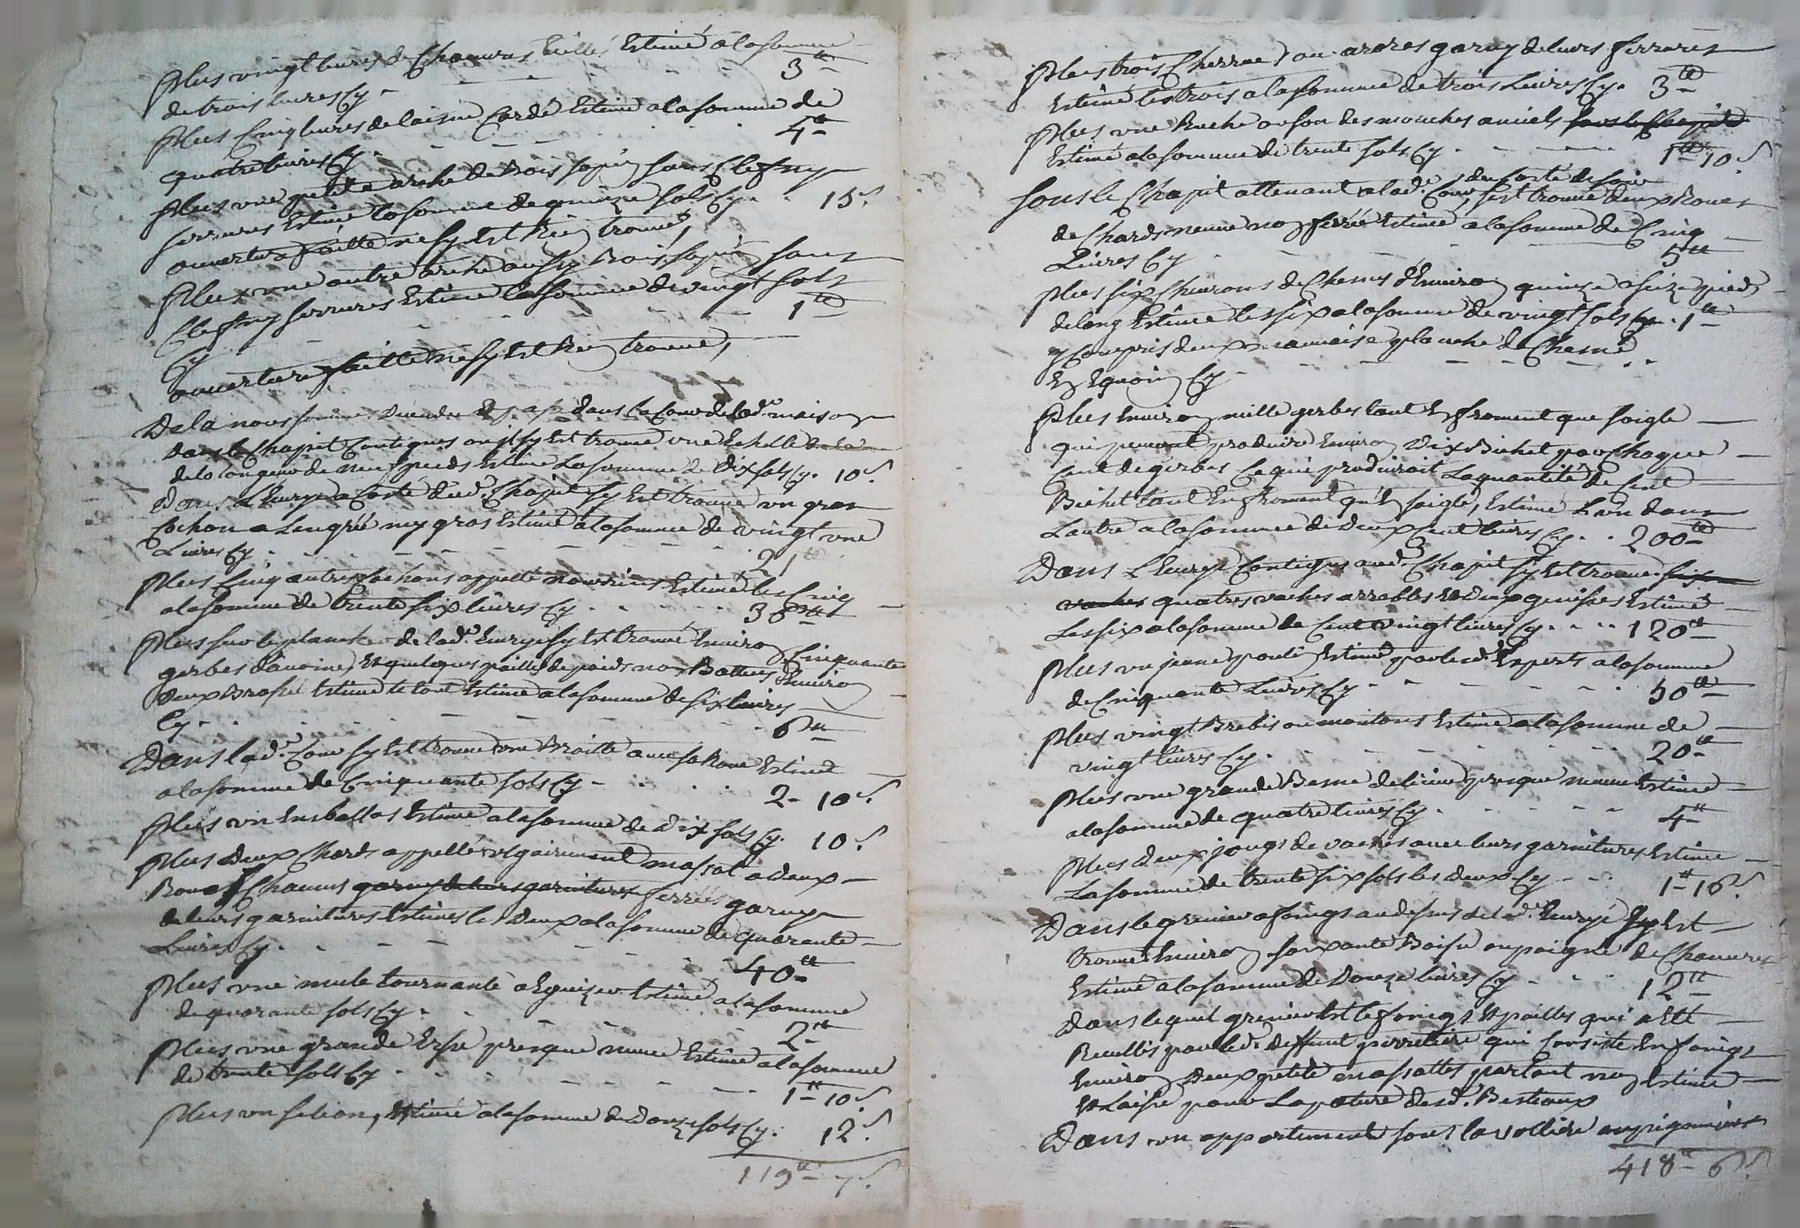 Plus vingt livres de Chanvres Estimé a la somme
de trois livres Cy - 3tt
Plus Cinq livres de laisne Cardé Estimé a la somme de
quatre livres Cy - 4tt
Plus une petite arche de Bois sapin sans Clef ny
serrures Estimé la somme de quinze sols Cy. 15s.
ouverture faitte ne sy est Rien trouvé,
Plus une autre arche aussy Bois sapin sans
Clef ny serrures Estimé la somme de vingt sols
Cy 1tt
ouverture faitte ne sy est Rien trouvé,
De la nous sommes dans la Cour de lad.e maison
dans le Chapit Contigues ou il sy est trouvé une Echelle de la
de la longueur de neuf pieds Estimé la somme de Dix sols Cy. 10s.
Dans l'Eurye a Costé dud. Chapit sy Est trouvé un gros
Cochon a Lengrié my gras Estimé a la somme de vingt une
Livres Cy 21tt
Plus Cinq autres Cochons appellé nourrins Estimé les Cinq
a la somme de trente six livres Cy 36tt
Plus sur le planché de lad.e Eurye sy Est trouvé Environ Cinquante
gerbes d'avoine, Et quelques paille de poids non Battues Environ
deux Estimé le tout Estimé a la somme de six livres
Cy - 6tt
Dans lad.e Cour sy Est trouvé une Broitte avec sa Roue Estimé
a la somme de Cinquante sols Cy - 2 - 10s.
Plus un Enballos Estimé a la somme de Dix sols Cy. 10s.
Plus Deux Chards appellé vulgairement massot a deux
Roues Chacuns garny de leurs garnitures ferrées garnys
de leurs garnitures Estimés les Deux a la somme de quarante
Livres Cy. 40tt
Plus une mule tournante a Eguizer Estimé a la somme
de quarante sols Cy. 2tt
Plus une grande Erse presque neuve Estimé a la somme
de trente sols Cy 1tt 10s.
Plus un selion, Estimé a la somme de Douze sols Cy. 12s.
119tt - 7s.
Plus trois Cherrues ou arares garny de leurs ferrures
Estimé les trois a la somme de trois Livres Cy. 3tt
Plus une Ruche ou son des mouches a miels sous le Chapit
Estimé a la somme de trente sols Cy 1tt 10s.
Sous le Chapit attenant a lad.e Cour, du Costé de soir sest trouvé deux Roues
de Chards neuve non ferrée Estimé a la somme de Cinq
Livres Cy 5tt
Plus six Chevrons de Chenes d'Environ quinze a seize pieds
de long Estimé les six a la somme de vingt sols Cy. 1tt
y Compris deux mauvaise planche de Chesne
Cy
Plus Environ mille gerbes tant En froment que soigle
qui peuvent produire Environ Dix Bichet par Chaque
Cent de gerbes Ce qui produiroit La quantité de Cent
Bichet tant En froment qu'En soigle, Estimé L'un dans
L'autre a la somme de Deux Cent livres Cy. 200tt
Dans L'Eurye Contigue aud. Chapit sy Est trouvé six
vaches quatres vaches arrables Et deux genisses Estimé
Les six a la somme de Cent vingt livres Cy. 120tt
Plus un jeune poulin Estimé par lesd. Experts a la somme
de Cinquante Livres Cy 50tt
Plus vingt Brebis ou moutons Estimé a la somme de
vingt livres Cy. 20tt
Plus une grande Benne de presque neuve Estimé
a la somme de quatre livres Cy 4tt
Plus deux jougs de vaches avec leurs garnitures Estimé
La somme de trente six sols les deux Cy 1tt 16s.
Dans le grenier a foings au dessus de lad.e Eurye sy Est
trouvé Environ soixante Boise ou poigné de Chanvres
Estimé a la somme de Douze livres Cy 12tt
Dans lequel grenier Est le foings, Et pailles qui a Ett
Recullis par led. deffunt perretiere qui Consiste En foings
Environ Deux petitte massattes partant non Estimé
Et Laisse pour La pature desd. Bestiaux
Dans un appartement sous la vollière au pigonniere
418tt - 6s.